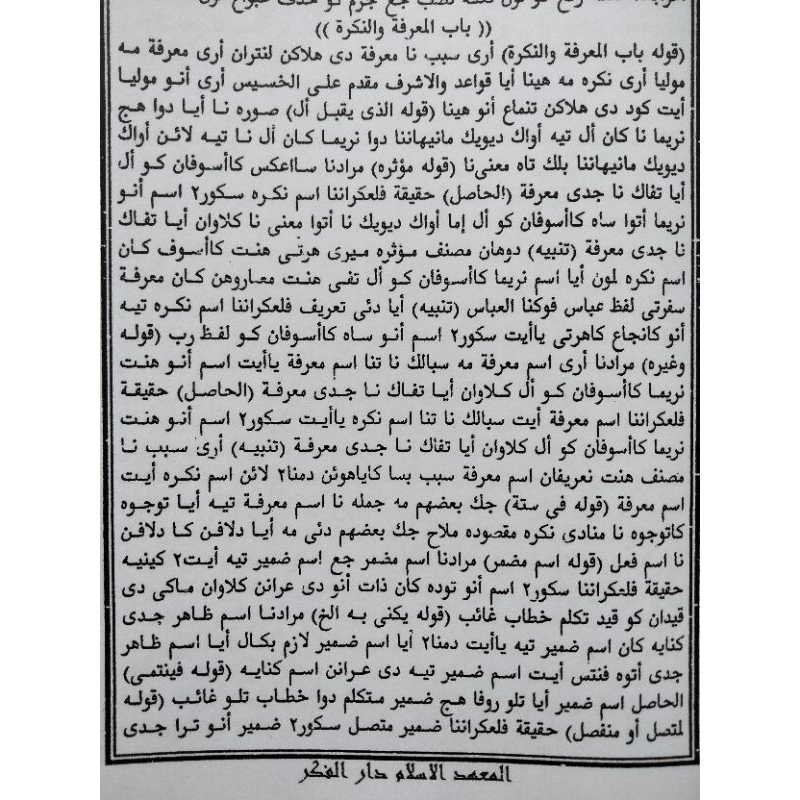 (( باب المعرفة والنكرة ))
(قوله باب المعرفة والنكرة) أرى سبب نا معرفة دى هلاكن لنتران أرى معرفة مه
موليا أرى نكره مه هينا أيا قواعد والاشرف مقدم على الخسيس أرى أنو موليا
أيت كود دى هلاكن تنماع أنو هينا (قوله الذى يقبل أل) صوره نا أيا دوا هج
نريما نا كان أل تيه أواك ديويك مانيهاننا دوا نريما كان أل نا تيه لائن أواك
ديويك مانيهاننا بلك تاه معنى نا (قوله مؤثره) مرادنا سااعكس كاأسوفان كو أل
أيا تفاك نا جدى معرفة (الحاصل) حقيقة فلعكراننا اسم نكره سكور٢ اسم أنو
نريما أتوا ساه كاأسوفان كو أل إما أواك ديويك نا أتوا معنى نا كلاوان أيا تفاك
نا جدى معرفة (تنبيه) دوهان مصنف مؤثره ميرى هرتى هنت كاأسوف كان
اسم نكره لمون أيا اسم نريما كاأسوفان كو أل تفى هنت معاروهن كان معرفة
سفرتى لفظ عباس فوكنا العباس (تنبيه) أيا دئى تعريف فلعكراننا اسم نكره تيه
أنو كانجاع كاهرتى ياأيت سكور٢ اسم أنو ساه كاأسوفان كو لفظ رب (قوله
وغيره) مرادنا أرى اسم معرفة مه سبالك نا تنا اسم معرفة ياأيت اسم أنو هنت
نريما كاأسوفان كو أل كلاوان أيا تفاك نا جدى معرفة (الحاصل) حقيقة
فلعكراننا اسم معرفة أيت سبالك نا تنا اسم نكره ياأيت سكور٢ اسم أنو هنت
نريما كاأسوفان كو أل كلاوان أيا تفاك نا جدى معرفة (تنبيه) أرى سبب نا
مصنف هنت نعريفان اسم معرفة سبب بسا كاياهوئن دمنا٢ لائن اسم نكره أيت
اسم معرفة (قوله فى ستة) جك بعضهم مه جمله نا اسم معرفة تيه أيا توجوه
كاتوجوه نا منادى نكره مقصوده ملاح جك بعضهم دئى مه أيا دلافن كا دلافن
نا اسم فعل (قوله اسم مضمر) مرادنا اسم مضمر جع اسم ضمير تيه أيت٢ كينيه
حقيقة فلعكراننا سكور٢ اسم أنو توده كان ذات أنو دى عرانن كلاوان ماكى دى
قيدان كو قيد تكلم خطاب غائب (قوله يكنى به الخ) مرادنا اسم ظاهر جدى
كنايه كان اسم ضمير تيه ياأيت دمنا٢ آيا اسم ضمير لازم بكال أيا اسم ظاهر
جدى أتوه فنتس أيت اسم ضمير تيه دى عرانن اسم كنايه (قوله فينتمى)
الحاصل اسم ضمير أيا تلو روفا هج ضمير متكلم دوا خطاب تلو غائب (قوله
لمتصل أو منفصل) حقيقة فلعكراننا ضمير متصل سكور٢ ضمير أنو ترا جدى
المعهد الاسلام دار الفكر